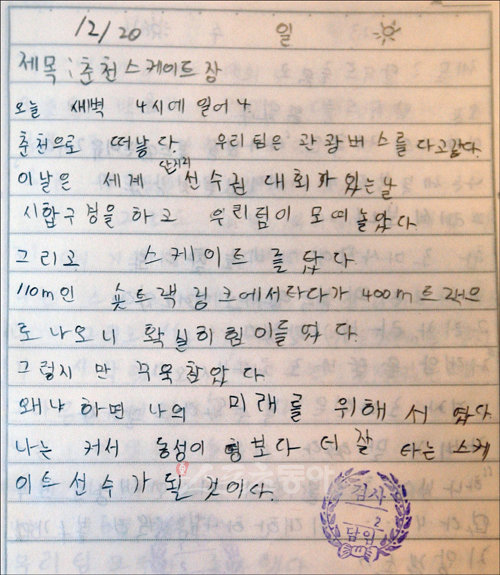 12/20 일
제목: 춘천스케이트장
오늘 새벽 4시에 일어나
춘천으로 떠났다. 우리팀은 관광버스를 타고갔다.
이날은 세계 단거리 선수권 대회가 있는날
시합구경을 하고 우리팀이 모여놀았다
그리고 스케이트를 탔다
110m인 숏트랙 링크에서타다가 400m 트랙으
로 나오니 확실히 힘이들었다.
그렇지만 꾸욱참았다
왜냐하면 나의 미래를 위해서 탔다
나는 커서 동성이 형보다 더 잘 타는 스케
이트 선수가 될 것이다.
검사
2
담임